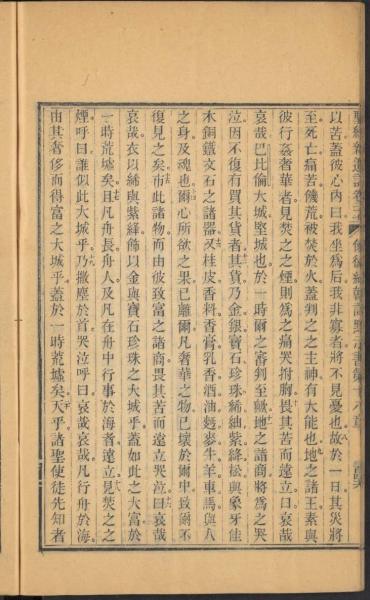 以苦蓋彼心內曰我坐爲后我非寡者將不見憂也故於一日其災將
至死亡痛苦饑荒被焚於火蓋判之之主神有大能也地之諸王素與
彼行姦奢華者見焚之之煙則爲之痛哭拊胸畏其苦而遠立曰哀哉
哀哉巴比倫大城堅城也於一時爾之審判至歟地之諸商將爲之哭
泣因不復有買其貨者其貨乃金銀寶石珍珠絺紬紫絳松與象牙佳
木銅鐵文石之諸器又桂皮香料香膏乳香酒油麪麥牛羊車馬與人
之身及魂也爾心所欲之果已離爾凡奢華之物已壞於爾中致爾不
復見之矣市此諸物而由彼致富之諸商畏其苦而遠立哭泣曰哀哉
哀哉衣以絺與紫絳飾以金與寶石珍珠之大城乎蓋如此之大富於
一時荒墟矣且凡舟長舟人及凡在舟中行事於海者遠立見焚之之
煙呼曰誰似此大城乎乃撒塵於首哭泣呼曰哀哉哀哉凡行舟於海
由其奢侈而得富之大城乎蓋於一時荒墟矣天乎諸聖使徒先知者